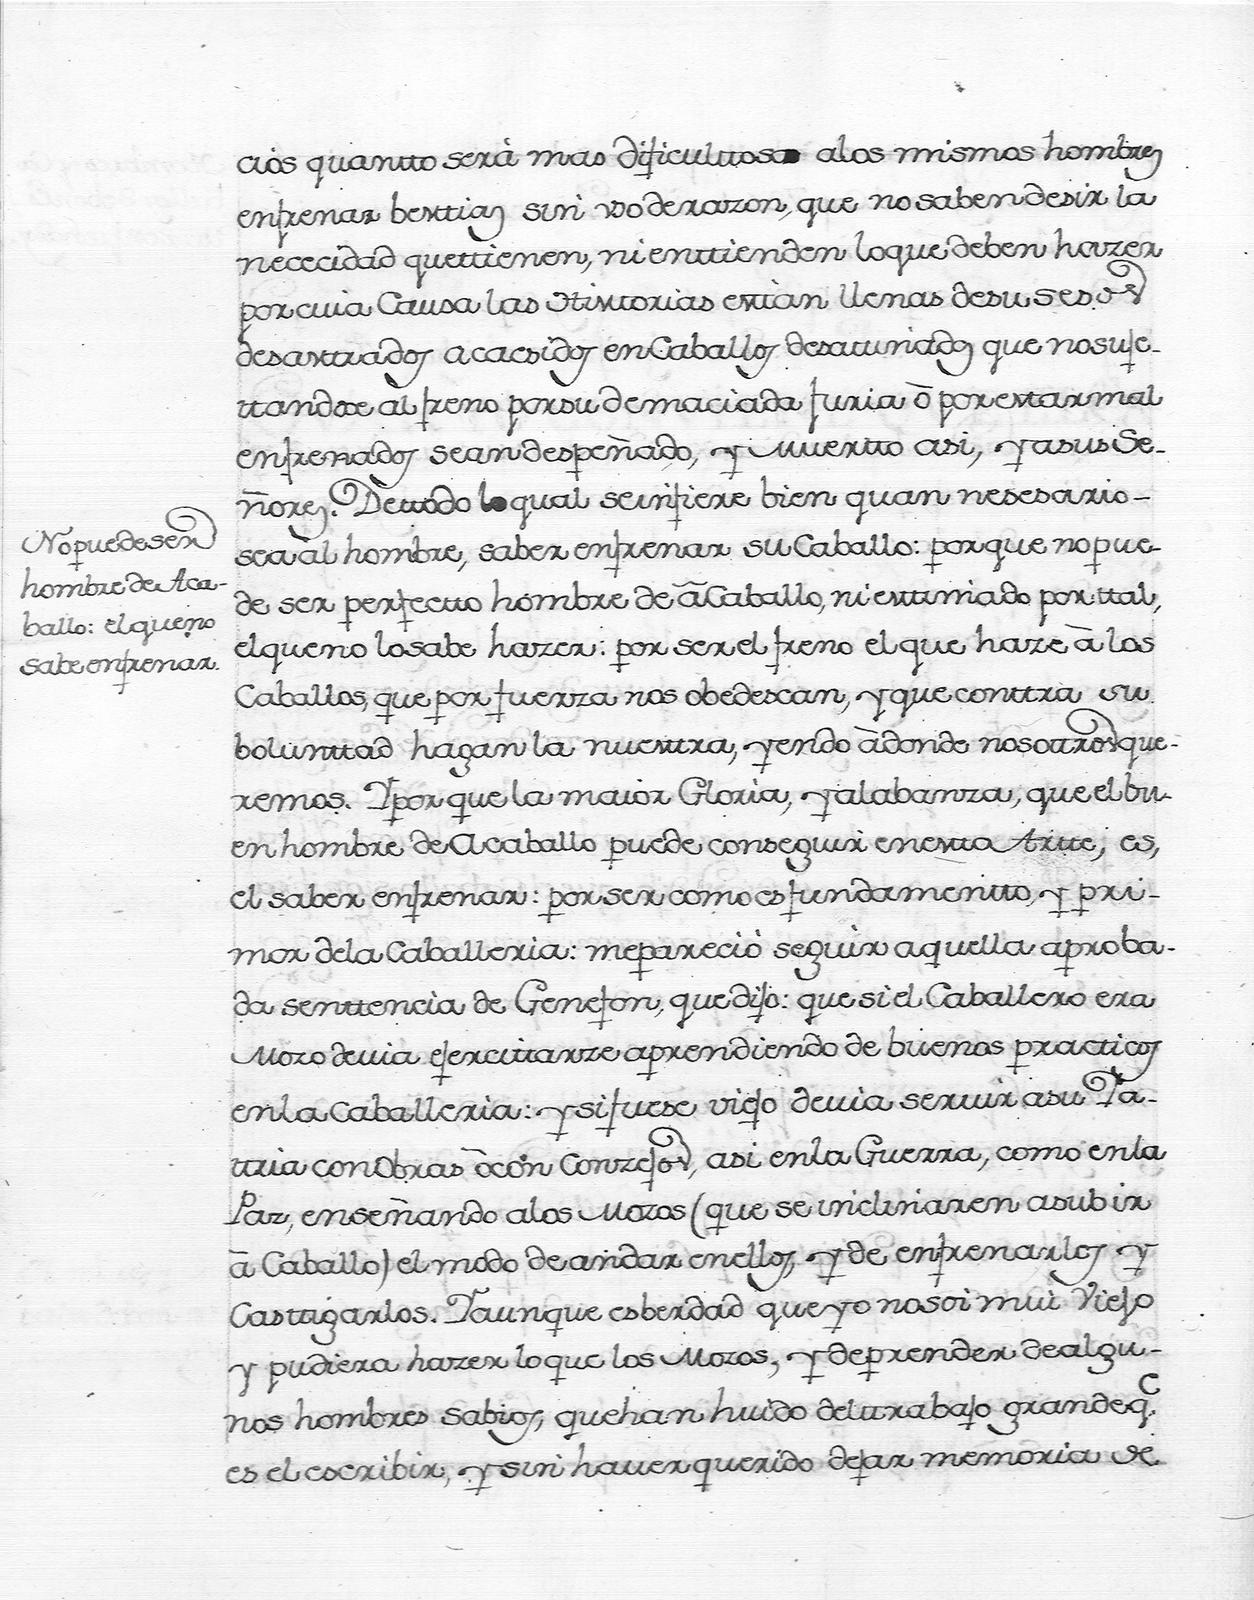 cios quantto serà mas dificulttoso alos mismos hombres
enfrenar besttias sin vso de razon, que no saben desir la
nececidad que ttienen, ni enttienden lo que deben hazer
por cuia Causa las Histtorias estan llenas de susesos
desastrados acaesidos en Caballos desatinados que no suje-
ttandose al freno por su demaciada furia ò por estar mal
enfrenados se an despeñado, y Muertto asi, y a sus Se-
ñores. De ttodo lo qual se infiere bien quan nesesario-
sea al hombre, saber enfrenar su Caballo: porque no pue-
de ser perfectto hombre de à Caballo, ni esttimado por ttal,
el que no lo sabe hazer: por ser el freno el que haze à los
Caballos, que por fuerza nos obedescan, y que conttra su
bolunttad hagan la nuesttra, yendo àdonde nosottros que-
remos. Y porque la maior Gloria, y alabanza, que el bu-
en hombre de Acaballo puede conseguir en estta Artte, es,
el saber enfrenar: por ser como es fundamentto, y pri-
mor de la Caballeria: me pareciò seguir aquella aproba-
da senttencia de Genefon, que dijo: que si el Caballero era
Mozo deuia ejercittarze aprendiendo de buenos practicos
en la Caballeria: y si fuese viejo deuia seruir a su Pa-
ttria con Obras ò con Conzejos, asi en la Guerra, como en la
Paz, enseñando a los Mozos (que se inclinaren a subir
à Caballo) el modo de andar en ellos, y de enfrenarlos y
Casttigarlos. Y aunque es berdad que yo no soi mui Viejo
y pudiera hazer lo que los Mozos, y deprender de algu-
nos hombres sabios, que han huido del ttrabajo grande q.e
es el escribir, y sin hauer querido dejar memoria de
No puede ser
hombre de Aca-
ballo: el que no
sabe enfrenar.